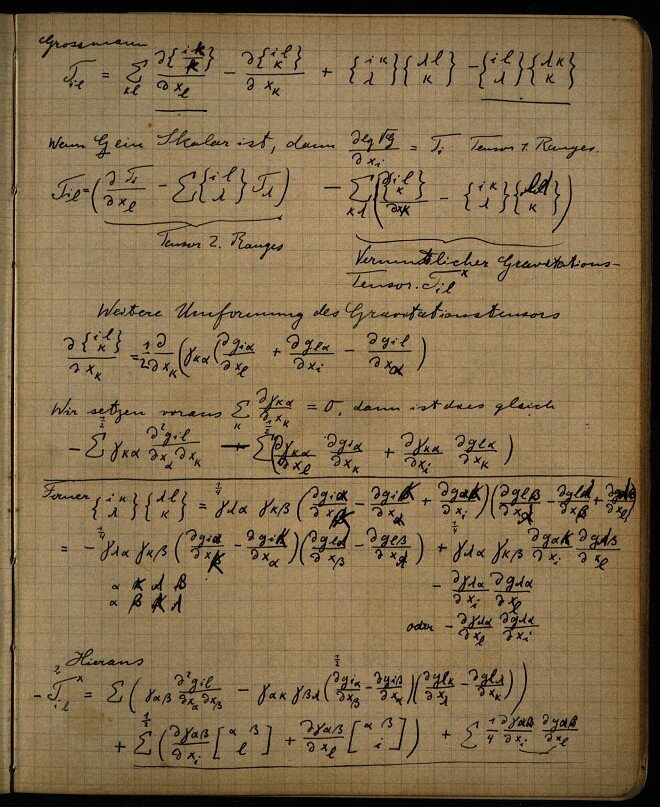 Grossmann
T_il = Σ_κl ∂{i κ / κ}/∂x_l − ∂{i l / κ}/∂x_κ + {i κ / λ}{λ l / κ} − {i l / λ}{λ κ / κ}
Wenn G ein Skalar ist, dann ∂lg√G/∂x_i = T_i Tensor 1. Ranges.
T_il = (∂T_i/∂x_l − Σ{i l / λ} T_λ) − Σ_κλ (∂{i l / κ}/∂x_κ − {i κ / λ}{λ l / κ})
Tensor 2. Ranges
Vermutlicher Gravitations-
Tensor. T_il^x
Weitere Umformung des Gravitationstensors
∂{i l / κ}/∂x_κ = 1/2 ∂/∂x_κ (γ_κα (∂g_iα/∂x_l + ∂g_lα/∂x_i − ∂g_il/∂x_α)
Wir setzen voraus Σ_κ ∂γ_κα/∂x_κ = 0, dann ist dies gleich
− Σ 1/2 γ_κα ∂²g_il/∂x_α∂x_κ + 1/2 Σ(∂γ_κα/∂x_l ∂g_iα/∂x_κ + ∂γ_κα/∂x_i ∂g_lα/∂x_κ)
Ferner {i κ / λ}{λ l / κ} = 1/4 γ_λα γ_κβ (∂g_iα/∂x_κ − ∂g_iκ/∂x_α + ∂g_ακ/∂x_i)(∂g_lβ/∂x_λ − ∂g_lλ/∂x_β + ∂g_λβ/∂x_l)
= − 1/4 γ_λα γ_κβ (∂g_iα/∂x_κ − ∂g_iκ/∂x_α)(∂g_lλ/∂x_β − ∂g_lβ/∂x_λ) + 1/4 γ_λα γ_κβ ∂g_ακ/∂x_i ∂g_λβ/∂x_l
α κ λ β
α β κ λ
− ∂γ_λα/∂x_i ∂g_λα/∂x_l
oder − ∂γ_λα/∂x_l ∂g_λα/∂x_i
Hieraus
− 2 T_il^x = Σ(γ_αβ ∂²g_il/∂x_α∂x_β − 1/2 γ_ακ γ_βλ (∂g_iα/∂x_β − ∂g_iβ/∂x_α)(∂g_lκ/∂x_λ − ∂g_lλ/∂x_κ))
+ 1/2 Σ(∂γ_αβ/∂x_i [α β / l] + ∂γ_αβ/∂x_l [α β / i]) + Σ 1/4 ∂γ_αβ/∂x_i ∂g_αβ/∂x_l